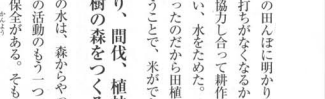 の田んぼに明かり
打ちがなくなるか
協力し合って耕作
い、水をためた。
ったのだから田植
うことで、米がで
り、間伐、植枝
樹の森をつくる
の水は、森からやっ
の活動のもう一つ
保全がある。そも
かんよう